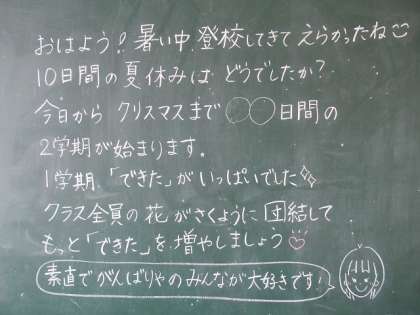 おはよう！暑い中、登校してきて えらかったね
10日間の夏休みは どうでしたか？
今日から クリスマスまで ◯◯日間の
2学期が始まります。
1学期、「できた」が いっぱいでした
クラス全員の 花 がさくように 団結して
もっと「できた」を 増やしましょう
素直で がんばりやの みんなが 大好きです！